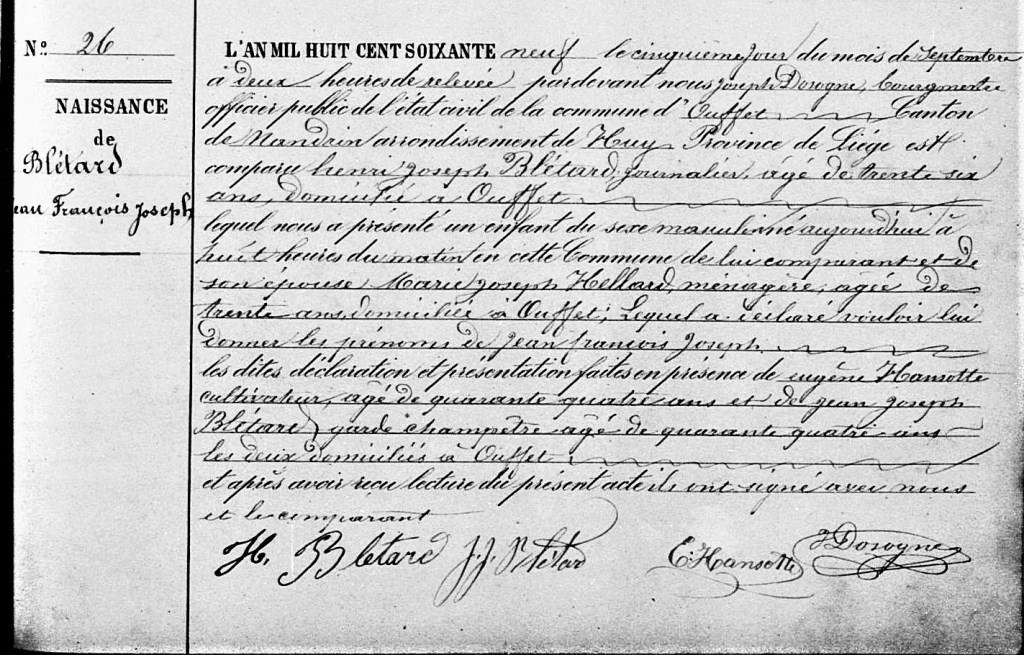 N° 26
NAISSANCE
de
Blétard
ean François Joseph
L'AN MIL HUIT CENT SOIXANTE neuf le cinquième jour du mois de Septembre
à deux heures de relevée pardevant nous joseph Dosogne, bourgmestre
officier public de l'état civil de la commune d'Ouffet Canton
de Nandrin arrondissement de Huy Province de Liége est
comparu henri joseph Blétard, journalier, agé de trente six
ans, domicilié à Ouffet
lequel nous a présenté un enfant du sexe masculin né aujourd'hui à
huit heures du matin en cette Commune de lui comparant et de
son épouse Marie joseph Hellard, ménagère, agée de
trente ans, domiciliée à Ouffet; Lequel a déclaré vouloir lui
donner les prénoms de jean françois joseph.
les dites déclaration et présentation faites en présence de eugène Hansotte
cultivateur, agé de quarante quatre ans et de jean joseph
Blétard, garde champêtre agé de quarante quatre ans
les deux domiciliés à Ouffet
et après avoir reçu lecture du présent acte ils ont signé avec nous
et le comparant
H. Bletard J. J. Blétard E. Hansotte J Dosogne